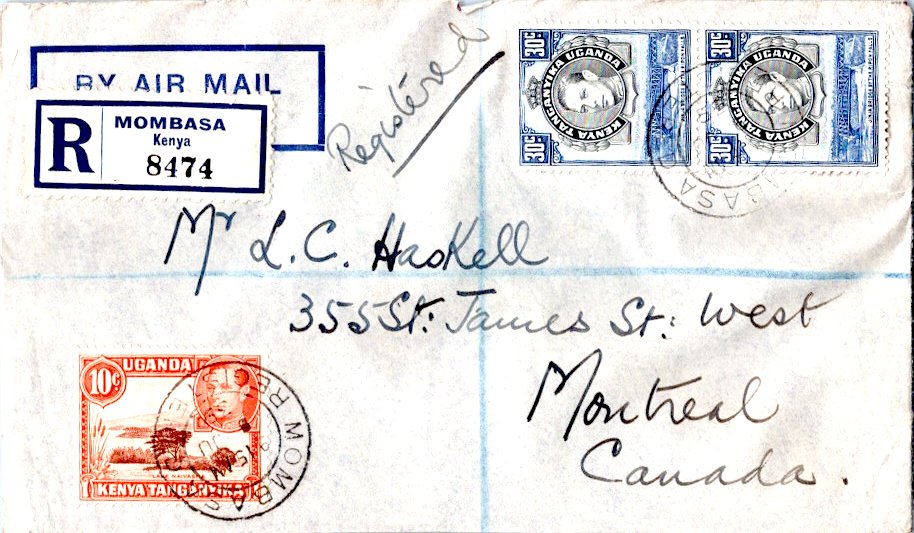 BY AIR MAIL
R
MOMBASA
Kenya
8474
Registered
30c
KENYA TANGANYIKA UGANDA
30c
KENYA TANGANYIKA UGANDA
Mr L.C. Haskell
355 St: James St: West
Montreal
Canada.
UGANDA
10c
KENYA TANGANYIKA
MOMBASA